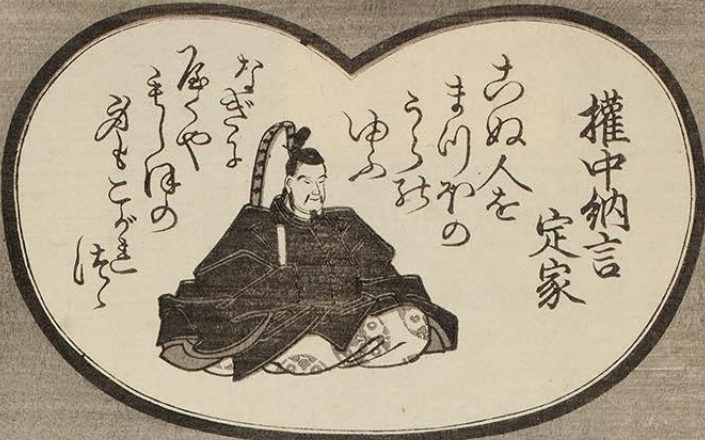 權中納言
定家
こぬ人を
まつほの
うらの
ゆふ
なぎに
やくや
もしほの
身もこがれ
つゝ